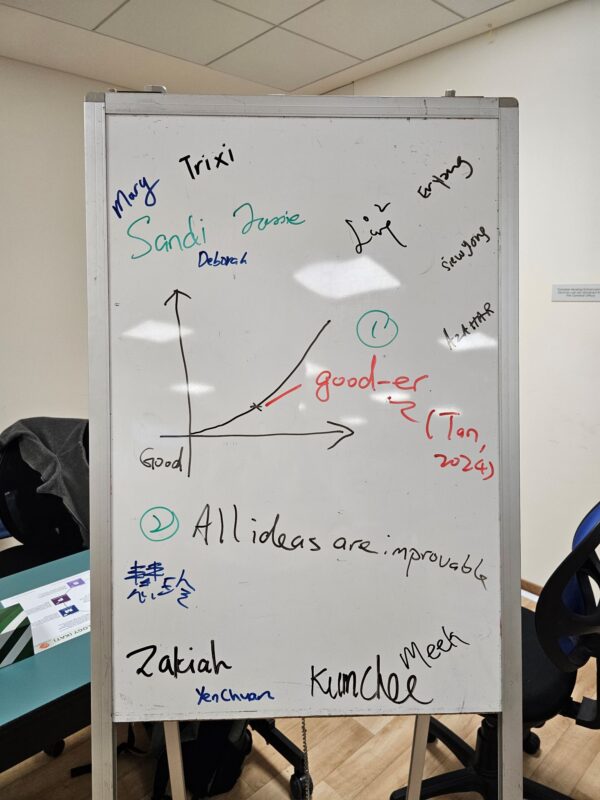 Trixi
Mary
Sandi
Deborah
siewyong
AZAHAR
1
good-er
(Tan,
2024)
Good
2 All ideas are improvable
Zakiah
YenChuan
KumChee
Meek